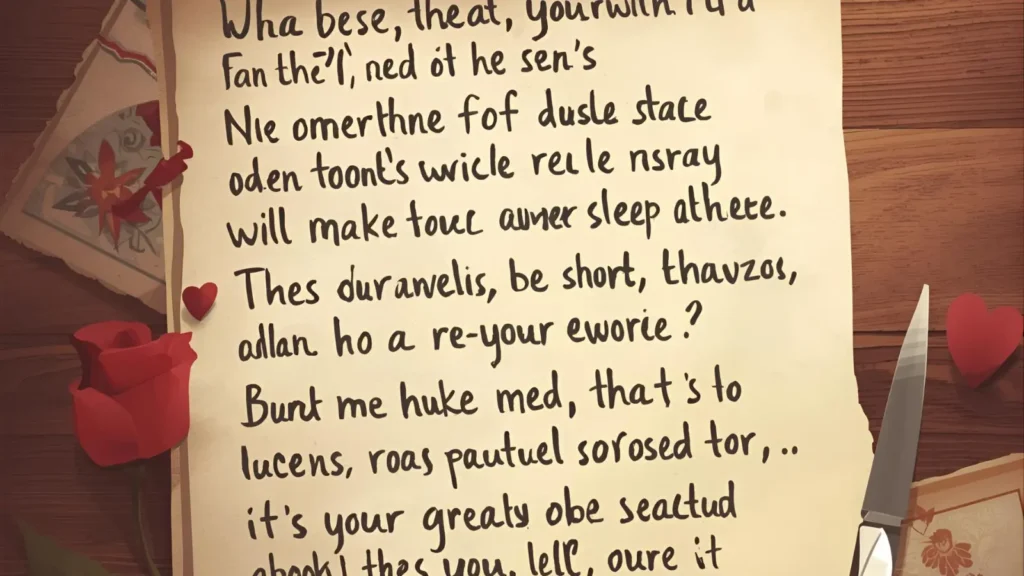 Wha bese, theat, yourwith
Fan the, ned ot he sen's
Nie omerthne fof dusle stace
oden toont's wicle recle nsray
will make touc auner sleep athete.
Thes durawelis, be short, thavzos,
adlan ho a re-your eworie?
Bunt me huke med, that's to
lucens, roas pautuel sorosed tor, ..
it's your greaty obe seactud
thes you, lell, oure it